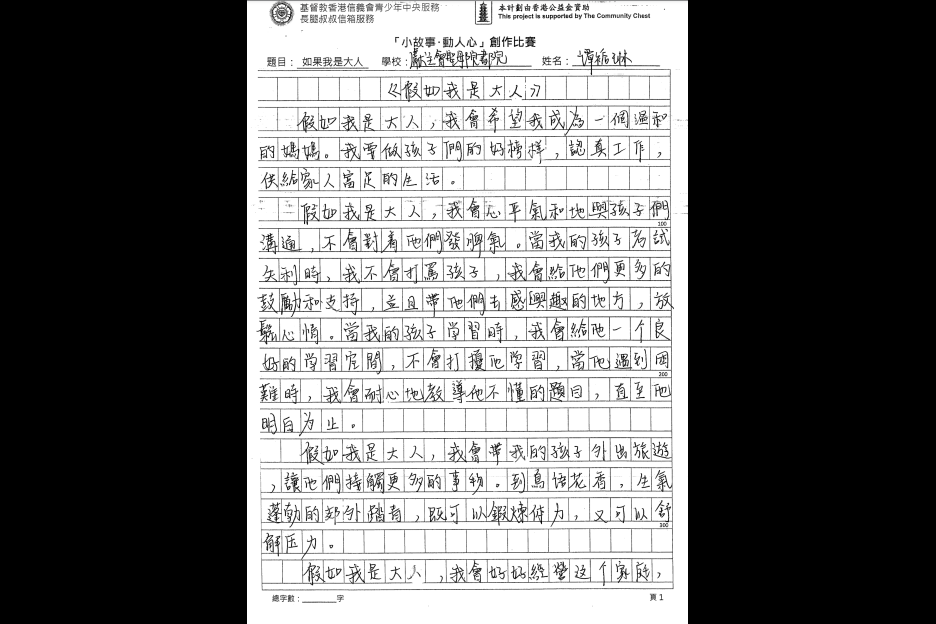 基督教香港信義會青少年中央服務
長腿叔叔信箱服務
本計劃由香港公益金資助
This project is supported by the Community Chest
「小故事‧動人心」創作比賽
題目： 如果我是大人 學校： 姓名：
《假如我是大人》
假如我是大人，我會希望我成為一個溫和
的媽媽。我要做孩子們的好榜樣，認真工作，
供給家人富足的生活。
假如我是大人，我會心平氣和地與孩子們
100
溝通，不會對着他們發脾氣。當我的孩子考試
失利時，我不會打罵孩子，我會給他們更多的
鼓勵和支持，並且帶他們去感興趣的地方，放
鬆心情。當我的孩子學習時，我會給他一个良
好的学習空間，不會打擾他学習，當他遇到困
200
難時，我會耐心地教導他不懂的題目，直至他
明白为止。
假如我是大人，我會帶我的孩子外出旅遊
，讓他們接觸更多的事物。到鳥语花香，生氣
蓬勃的郊外踏青，既可以鍛煉体力，又可以舒
300
解压力。
假如我是大人，我會好好經營这个家庭，
總字數：________字
頁 1